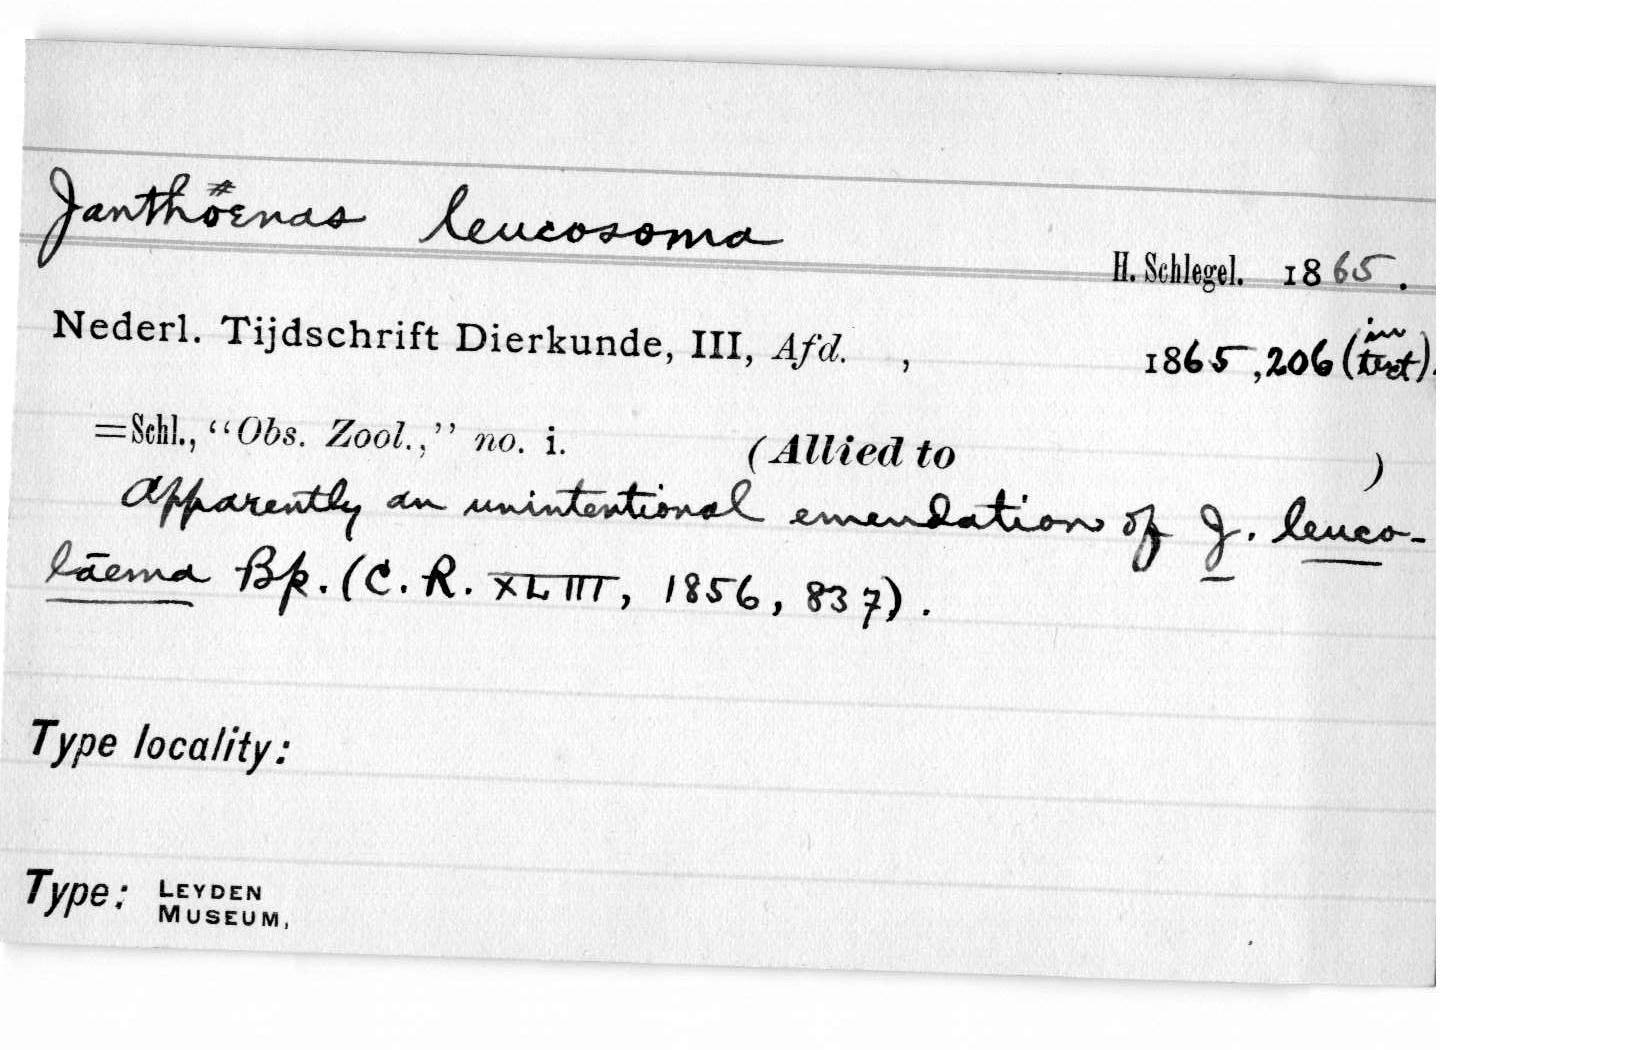 Janthöenas leucosoma
H. Schlegel. 1865.
Nederl. Tijdschrift Dierkunde, III, Afd. , 1865, 206 (in text).
=Schl., “Obs. Zool.,” no. i. (Allied to )
Apparently an unintentional emendation of J. leuco-
lāema Bp. (C. R. XLIII, 1856, 837).
Type locality:
Type: LEYDEN
MUSEUM,